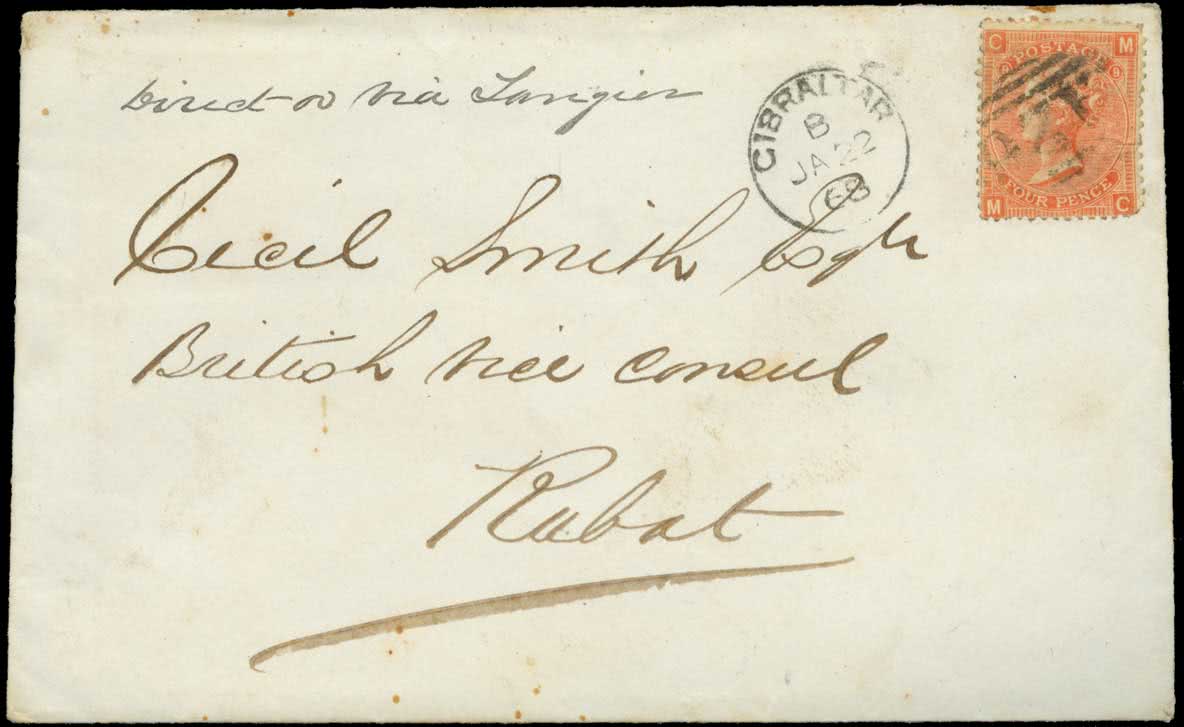 Direct or via Tangier
GIBRALTAR
B
JA 22
68
C POSTAGE M
9 9
M FOUR PENCE C
Cecil Smith Esqre
British Vice Consul
Rabat